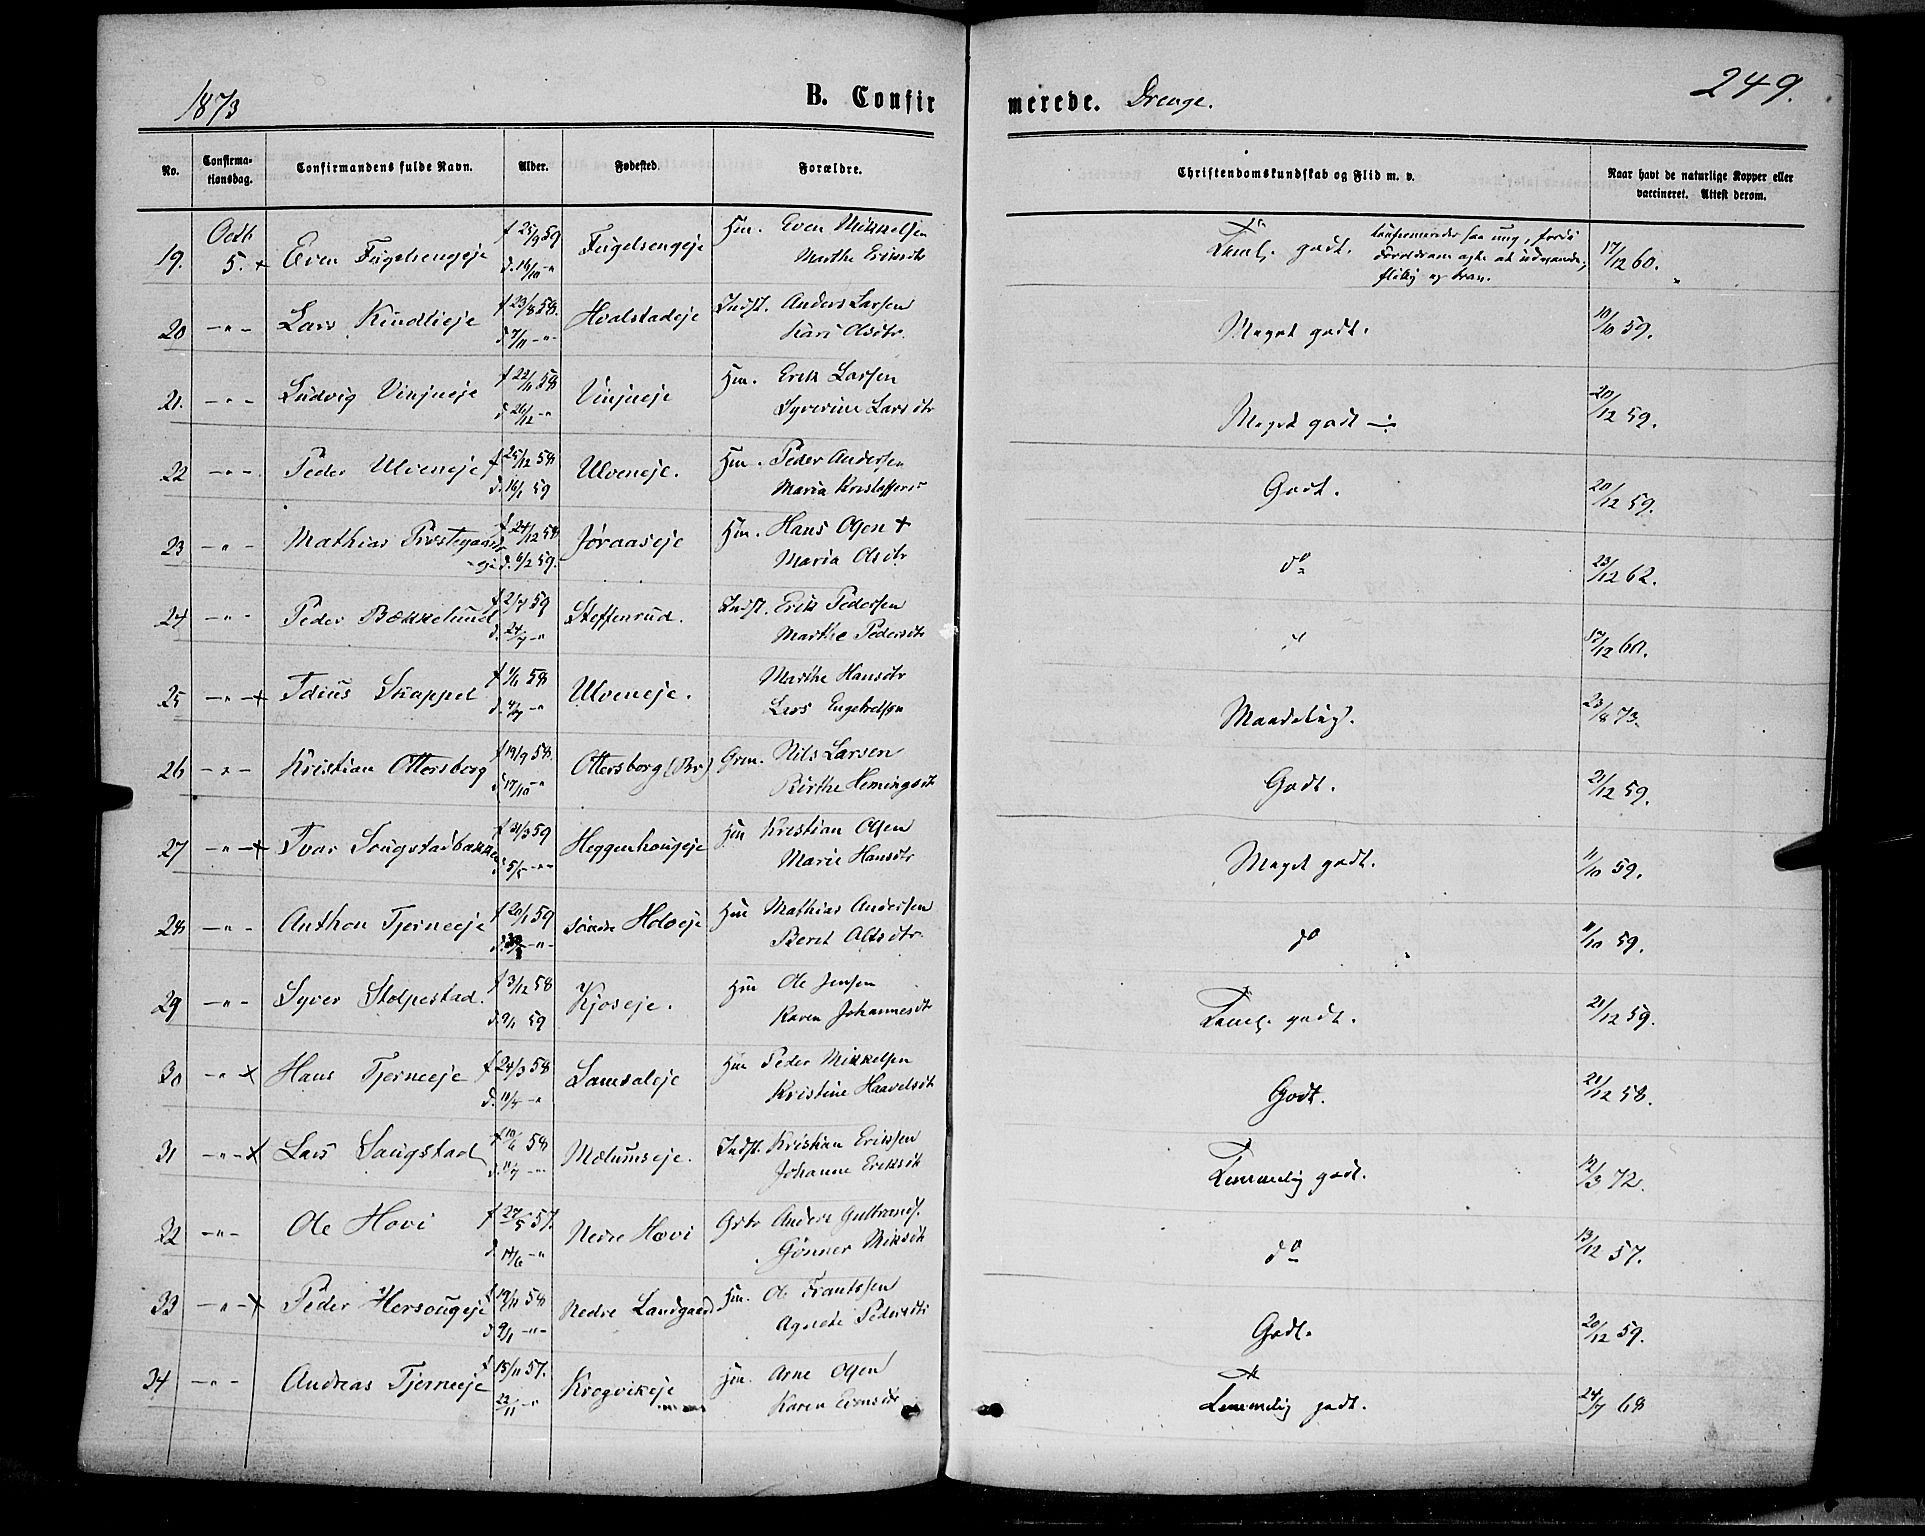 1873
B. Confir
merede. Drenge.
249.
No.
Confirma-
tionsdag.
Confirmandens fulde Navn.
Alder.
Fødested.
Forældre.
Christendomskundskab og Flid m. v.
Naar havt de naturlige Kopper eller
vaccineret. Attest derom.
Octb
19. 5. + Even Fugelsengeje f 25/9 59 Fugelsengeje Hm. Even Mikkelsen
d. 16/10 -"- Marthe Eriksdtr
Teml. godt. konfirmeredes saa ung, fordi
Forældrene agte at udvandre;
flittig og brav.
17/12 60.
20 -"- Lars Kindlieje f 23/8 58. Hvalstadeje Indst. Anders Larsen
d 7/11 -"- Kari Olsdtr.
Meget godt. 10/10 59.
21. -"- Ludvig Vinjueje f 22/11 58 Vinjueje Hm. Erik Larsen
d 26/12 -"- Syverine Larsdtr
Meget godt 20/12 59.
22 -"- Peder Ulveneje f 25/12 58 Ulveneje. Hm. Peder Andersen
d. 16/1 59 Maria Kristoffersd
Godt. 20/12 59.
23 -"- Mathias Prestegaards- f 24/12 58 Joraaseje Hm. Hans Olsen +
eje d. 6/2 59. Maria Olsdtr
do 23/12 62.
24 -"- Peder Bækkelund f 2/7 59 Steffenrud. Indst. Erik Pedersen
d. 24/7 -"- Marthe Pedersdtr
" /12 60.
25 -"- + Idius Skappel f 1/1 58 Ulveneje. Marthe Hansdtr
d. 4/7 -"- Lars Engebretsen
Maadelig. 23/8 73.
26 -"- Kristian Ottersborg f 19/9 58. Ottersborg (Br) Grm. Nils Larsen
d 17/10 -"- Birthe Hemingsdtr
Godt. 21/12 59.
27 -"- + Ivar Sougstadbakken f 31/3 59 Heggenhougeje Hm Kristian Olsen
d 5/5 -"- Marie Hansdtr
Meget godt. 11/10 59.
28 -"- Anthon Tjerneeje f 20/1 59 søndre Hoveje Hm Mathias Andersen
d. -"- Beret Olsdtr.
do 11/10 59.
29 -"- Syver Stolpestad. f 3/12 58 Kjoseje. Hm Ole Jensen
d. 9/1 59 Karen Johannesdtr
Teml. godt. 21/12 59.
30 -"- + Hans Tjerneeje f 24/3 58 Samsaleje Hm Peder Mikkelsen
d. 11/4 -"- Kristine Haavelsdtr
Godt. 21/12 58.
31 -"- + Lars Saugstad f 10/6 58 Mælumseje. Indst. Kristian Eriksen
d. 11/7 -"- Johanne Eriksdtr
Temmelig godt. 12/3 72.
32 -"- Ole Hovi f 27/5 57. Nedre Hovi Gbr Anders Gulbrands.
d. 14/6 -"- Gønner Miksdtr
do 13/12 57.
33 -"- + Peder Hersougeje f 19/11 58 Nedre Landgaard Hm. Ole Frantssen
d 9/1 -"- Agnete Pedersdtr
Godt. 20/12 59.
34 -"- Andreas Tjerneeje f 15/11 57. Kregvikeje Hm. Arne Olsen
22/11 -"- Karen Evensdtr
Temmelig godt. 24/7 68